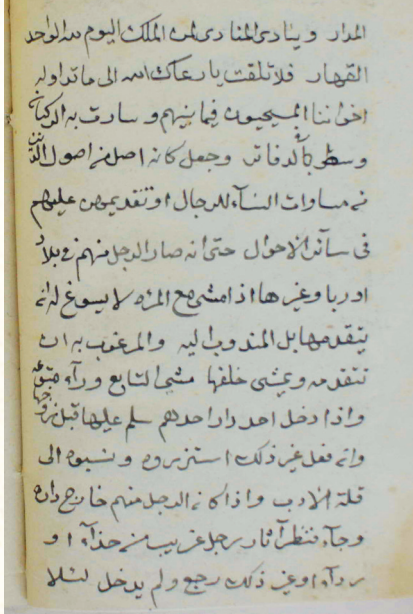 المدار وينادى المنادى لمن الملك اليوم لله الواحد
القهار فلا تلتفت يا رعاك الله الى ما تداوله
اخواننا المسيحيون فيما بينهم وسارت به الركبان
وسطر بالدفاتر وجعل كانه اصل من اصول الدين
من مساوات النسآء للرجال او تقديمهن عليهم
فى سائر الاحوال حتى انه صار الرجل منهم فى بلاد
اوربا وغيرها اذا مشى مع المرءه لا يسوغ له انه
يتقدمها بل المندوب اليه والمرغوب به ان
تتقدمه ويمشى خلفها مشى التابع ورآء متبوعه
واذا دخل احد دار احدهم سلم عليها قبل زوجها
وان فعل غير ذلك استزروه ونسبوه الى
قلة الادب واذا كانه الرجل منهم خارج داره
وجآء فنظر آثار رجل غريب من حذآء او
ردآء او غير ذلك رجع ولم يدخل لئلا